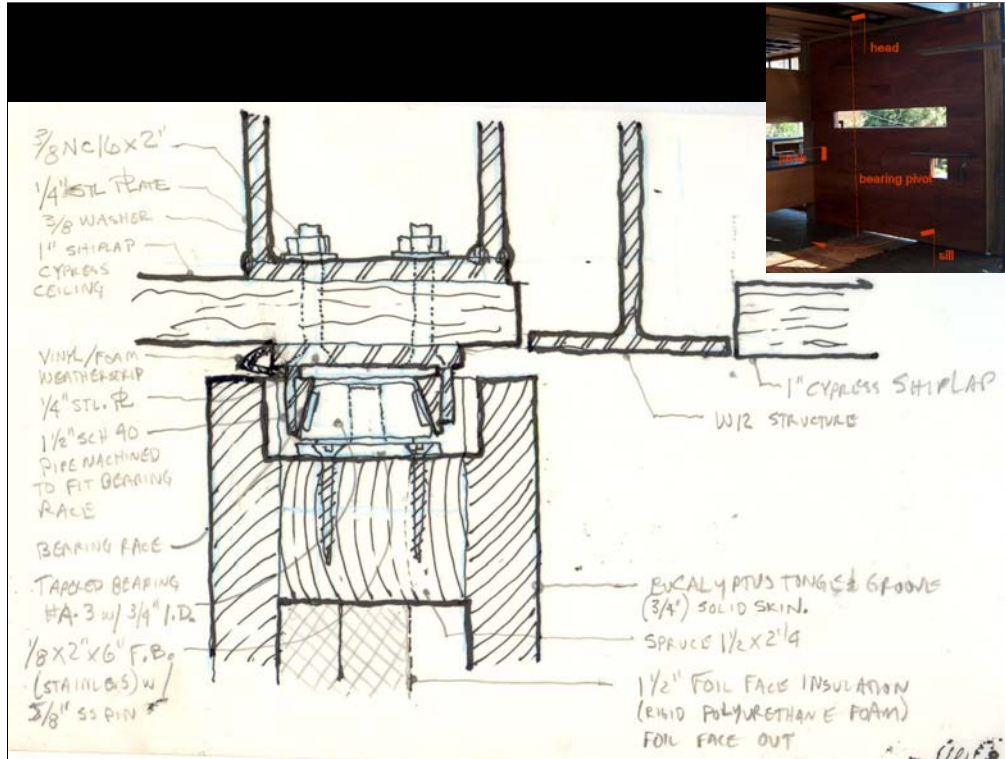 head
bearing pivot
sill
3/8 NC 16 X 2"
1/4" STL PLATE
3/8 WASHER
1" SHIPLAP
CYPRESS
CEILING
VINYL/FOAM
WEATHERSTRIP
1/4" STL. PL
1 1/2" SCH 40
PIPE MACHINED
TO FIT BEARING
RACE
BEARING RACE
TAPPLED BEARING
#A-3 W/ 3/4" I.D.
1/8 X 2" X 6" F.B.
(STAINLESS) W/
5/8" SS PIN
1" CYPRESS SHIPLAP
W12 STRUCTURE
EUCALYPTUS TONG & GROOVE
(3/4") SOLID SKIN.
SPRUCE 1 1/2 X 2 1/4
1 1/2" FOIL FACE INSULATION
(RIGID POLYURETHANE FOAM)
FOIL FACE OUT